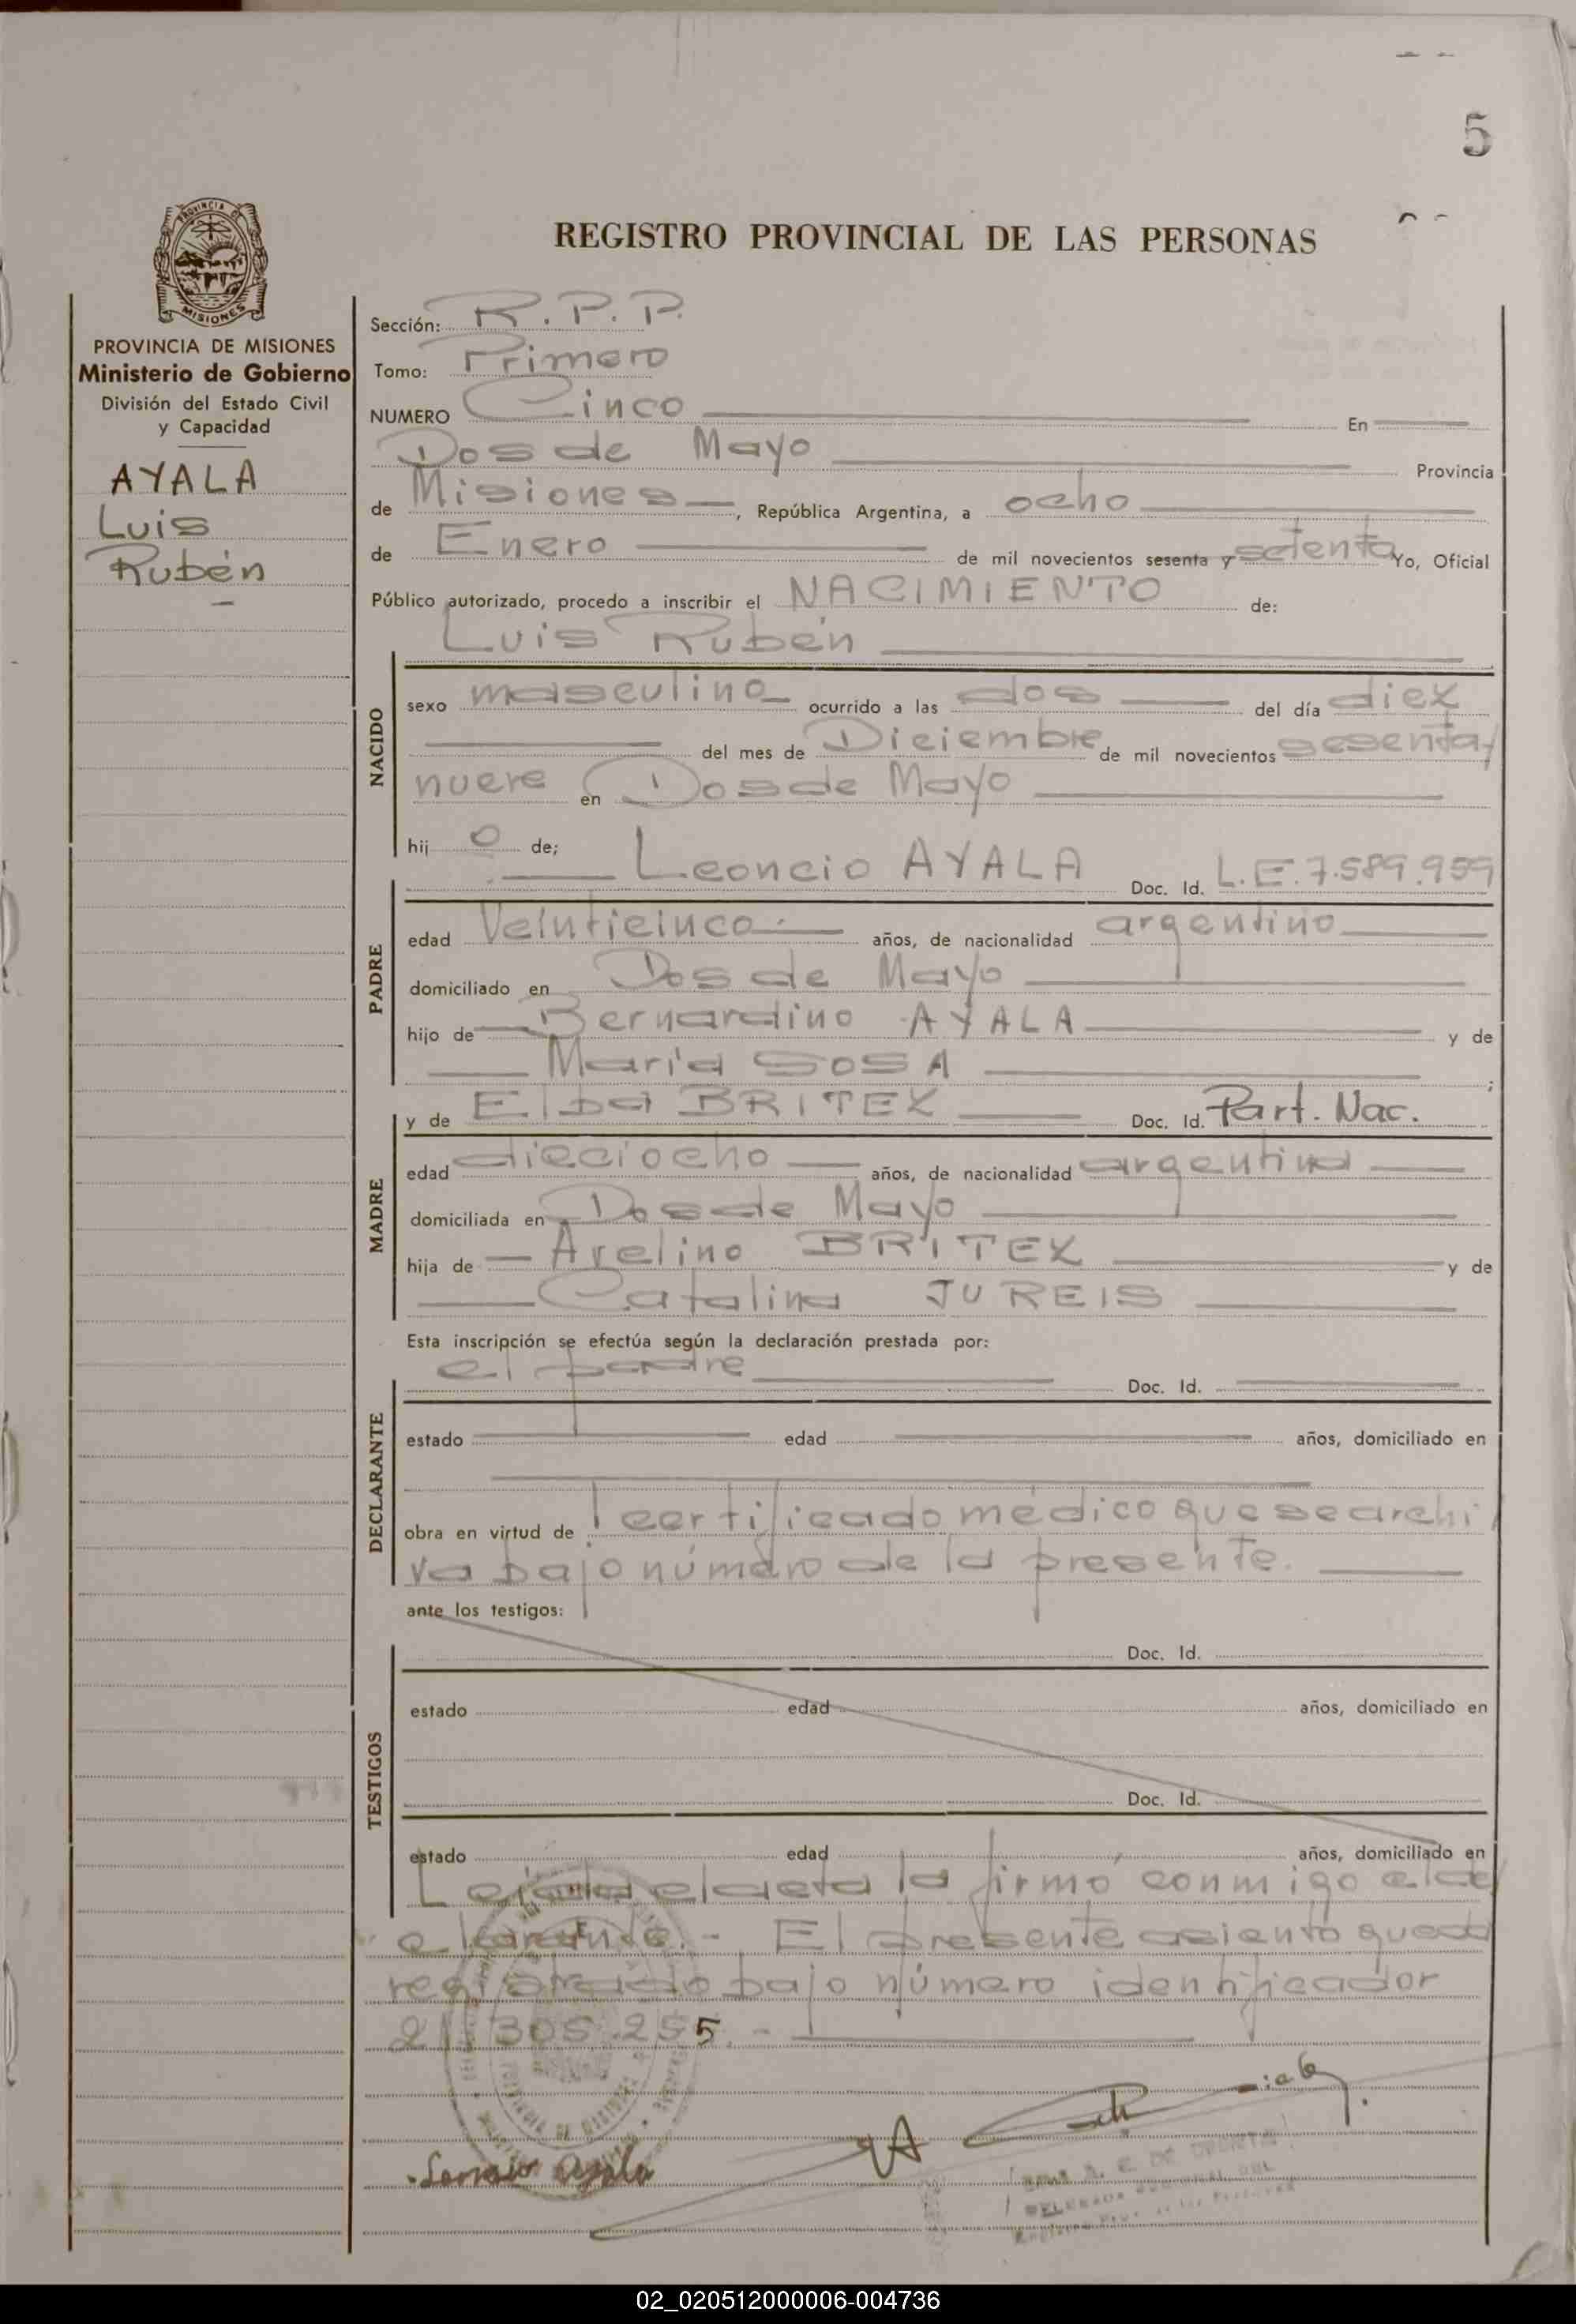 5
REGISTRO PROVINCIAL DE LAS PERSONAS
PROVINCIA DE
MISIONES
PROVINCIA DE MISIONES
Ministerio de Gobierno
División del Estado Civil
y Capacidad
AYALA
Luis
Rubén
Sección: R.P.P.
Tomo: Primero
NUMERO Cinco En
Dos de Mayo Provincia
de Misiones, República Argentina, a ocho
de Enero de mil novecientos sesenta y setenta Yo, Oficial
Público autorizado, procedo a inscribir el NACIMIENTO de:
Luis Rubén
NACIDO
sexo masculino ocurrido a las dos del día diez
del mes de Diciembre de mil novecientos sesenta y
nueve en Dos de Mayo
hij o de;
Leoncio AYALA Doc. Id. L.E. 7.589.959
PADRE
edad Veinticinco años, de nacionalidad argentino
domiciliado en Dos de Mayo
hijo de Bernardino AYALA y de
María SOSA ;
y de Elba BRITEZ Doc. Id. Part. Nac.
MADRE
edad dieciocho años, de nacionalidad argentina
domiciliada en Dos de Mayo
hija de Avelino BRITEZ y de
Catalina JUREIS
Esta inscripción se efectúa según la declaración prestada por:
el padre Doc. Id.
DECLARANTE
estado edad años, domiciliado en
obra en virtud de l certificado médico que se archi
va bajo número de la presente.
ante los testigos:
Doc. Id.
TESTIGOS
estado edad años, domiciliado en
Doc. Id.
estado edad años, domiciliado en
Leída el acta la firmó conmigo el de
clarante.- El presente asiento queda
registrado bajo número identificador
21.305.255.-
Leoncio Ayala
02_020512000006-004736